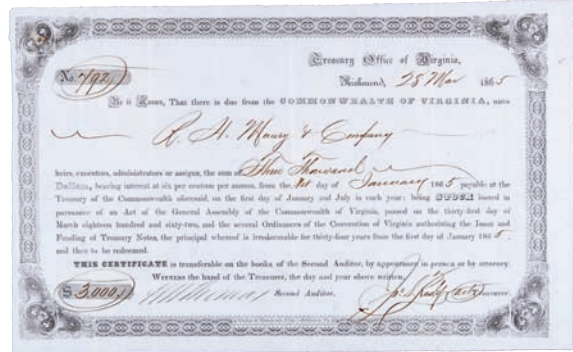 Treasury Office of Virginia,
No 792
Richmond, 28 Mar 1865
Be it Known, That there is due from the COMMONWEALTH OF VIRGINIA, unto
R. H. Maury & Company
heirs, executors, administrators or assigns, the sum of Three Thousand
Dollars, bearing interest at six per centum per annum, from the 1st day of January 1865 payable at the
Treasury of the Commonwealth aforesaid, on the first day of January and July in each year: being STOCK issued in
pursuance of an Act of the General Assembly of the Commonwealth of Virginia, passed on the thirty-first day of
March eighteen hundred and sixty-two, and the several Ordinances of the Convention of Virginia authorizing the Issue and
Funding of Treasury Notes, the principal whereof is irredeemable for thirty-four years from the first day of January 1865.
and then to be redeemed.
THIS CERTIFICATE is transferable on the books of the Second Auditor, by appearance in person or by attorney
WITNESS the hand of the Treasurer, the day and year above written.
$ 3,000,
Second Auditor.